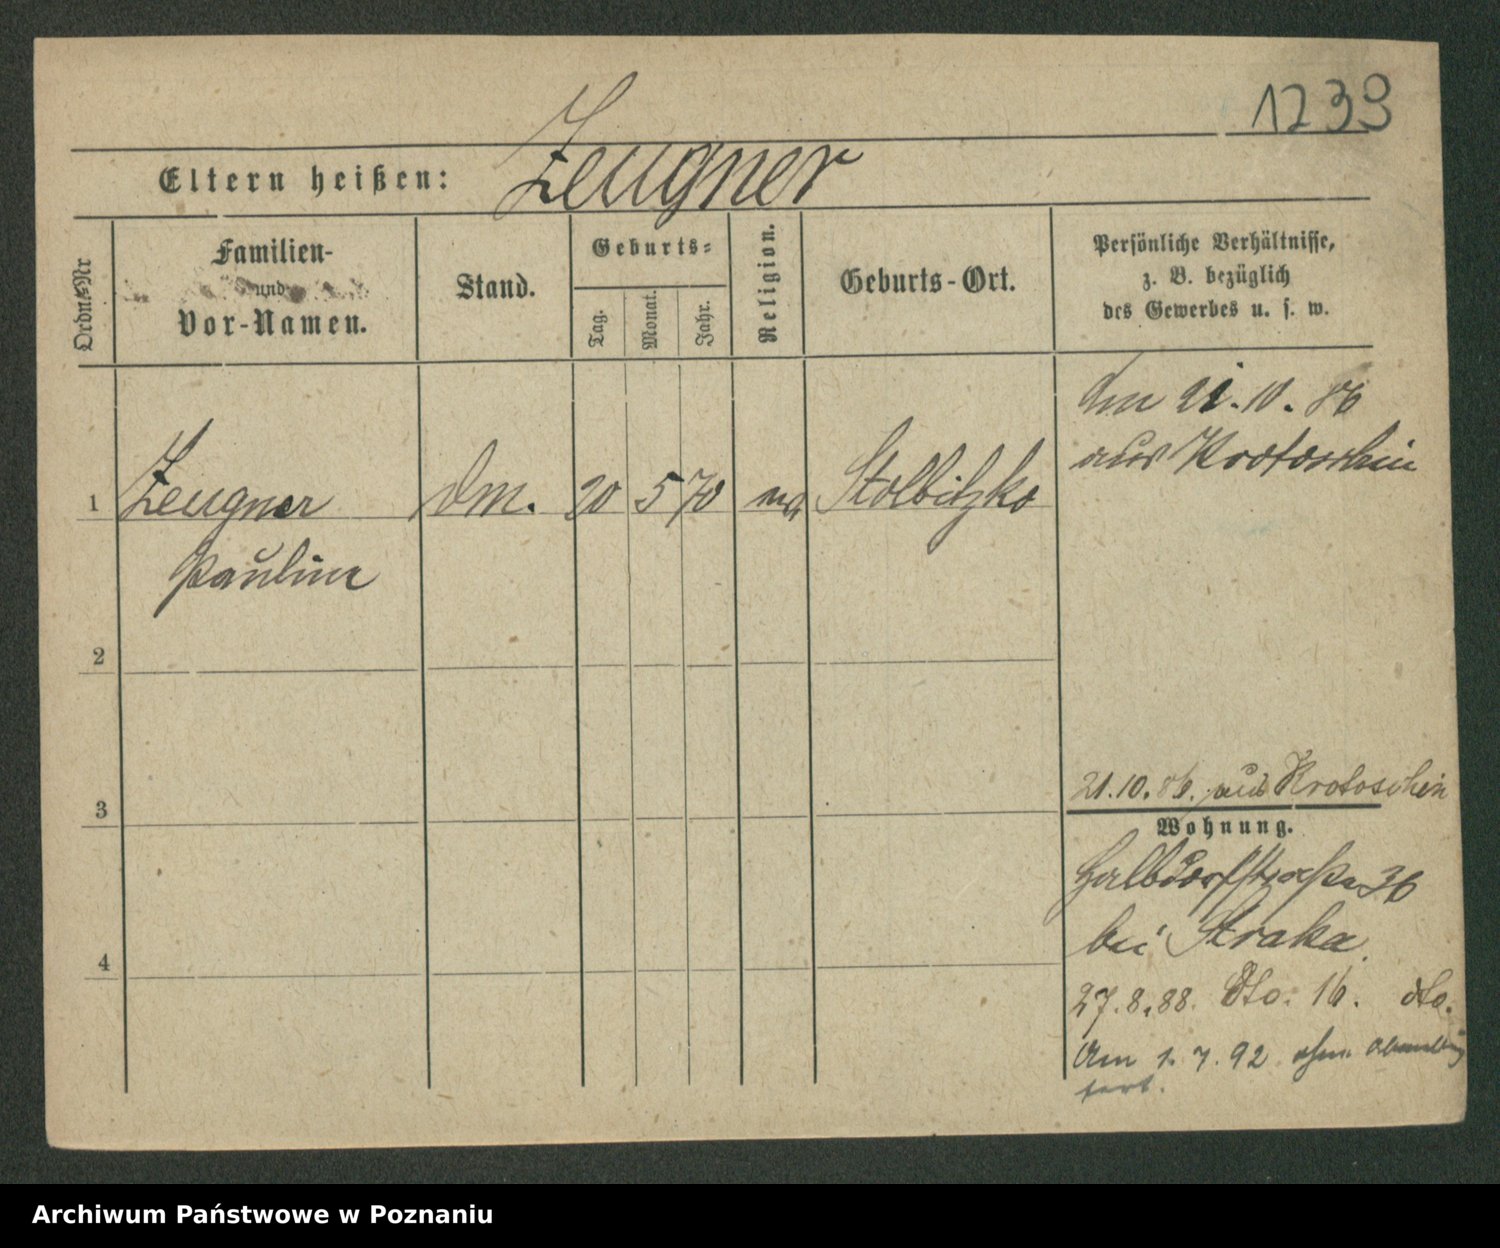 1239
Eltern heißen: Zeugner
Ordn.=Nr
Familien-
und
Vor-Namen.
Stand.
Geburts=
Tag.
Monat.
Jahr.
Religion.
Geburts-Ort.
Persönliche Verhältnisse,
z. B. bezüglich
des Gewerbes u. s. w.
1 Zeugner dm. 20 5 70 Stolbitzko
Pauline
2
3
4
am 21.10.86
aus Krotoschin
21.10.86. aus Krotoschin
Wohnung.
Halbdorfstraße 36
bei Straka.
27.8.88. dto. 16. dto.
Am 1.7.92 ohne Abmeldung
fort.
Archiwum Państwowe w Poznaniu